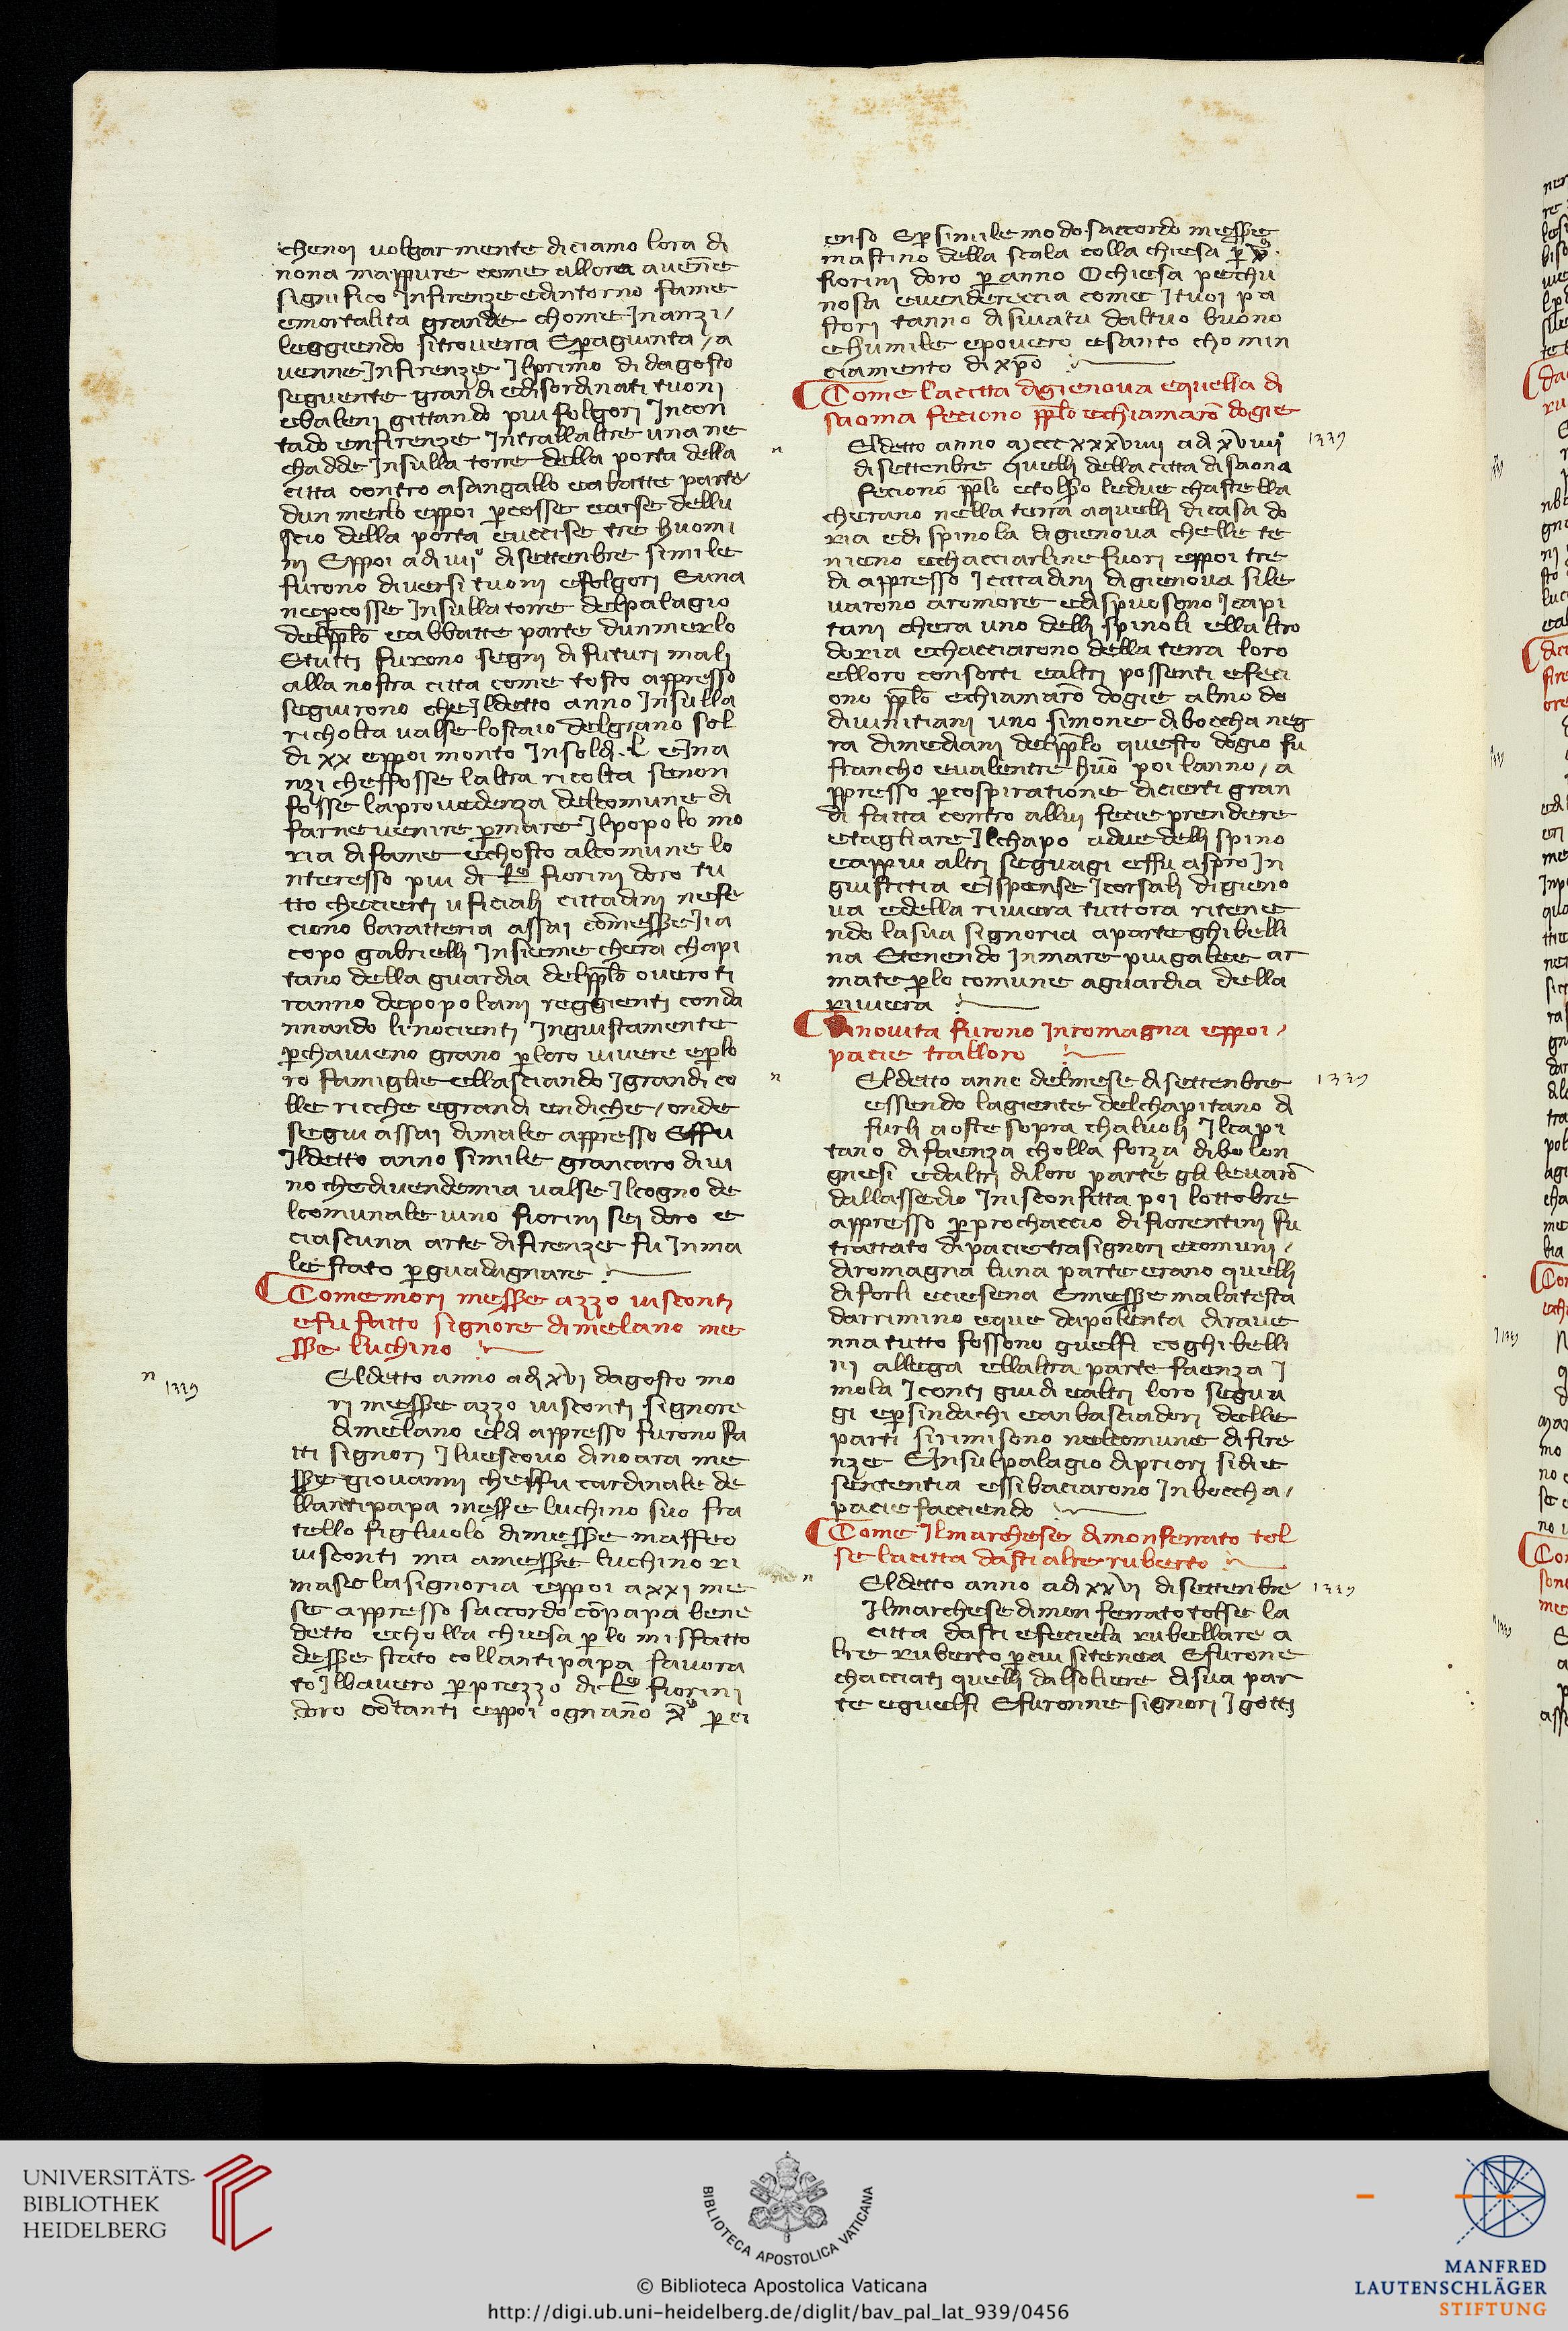 chenoi volgarmente diciamo lora di
nona mappure come allora avene
significo Infirenze edintorno fame
emortalita grande chome Inanzi/
leggiendo sitroverra Eperagiunta/ a
venne Infirenze Ilprimo di dagosto
seguente grandi edisordinati tuoni
ebaleni gittando piu folgori Incon
tado enfirenze Intrallaltre una ne
chadde Insulla torre della porta della
citta contro asangallo eabatte parte
dun merlo eppoi percosse earse dellu
scio della porta euccise tre huomi
ni Eppoi adi vij° disettenbre simile
furono diversi tuoni efolgori Euna
nepercosse Insulla torre delpalagio
delpplo eabbatte parte dunmerlo
Etutti furono segni di futuri mali
alla nostra citta come tosto appresso
seguirono che Ildetto anno Insulla
richolta valse lostaio delgrano sol
di xx eppoi monto Insoldi .L eIna
nzi cheffosse laltra ricolta senon
fosse laprovedenza delcomune di
farne venire permare Ilpopolo mo
ria difame echosto alcomune lo
nteresso piu di L° fiorini doro tu
tto checierti uficiali cittadini nefe
ciono baratteria assai comesser Jia
copo gabrielli Insieme chera chapi
tano della guardia delpplo overo ti
ranno depopolani reggienti conda
nnando linocienti Ingiustamente
perchavieno grano perloro vivere eperlo
ro famiglie ellasciando Igrandi co
lle ricche egrandi endiche/ onde
segui assai dimale appresso Effu
Ildetto anno simile grancaro di vi
no chedivendemia valse Ilcogno de
lcomunale vino fiorini sei doro e
ciascuna arte difirenze fu Inma
le stato perguadagnare
Comemori messer azzo visconti
efu fatto signore dimelano me
sser luchino
n 1339
Eldetto anno adi xvi dagosto mo
ri messer azzo visconti signore
dimelano eldi appresso furono fa
tti signori Ilvescovo dinoara me
sser giovanni cheffu cardinale de
llantipapa messer luchino suo fra
tello figliuolo dimesser maffeo
visconti ma amesser luchino ri
mase lasignoria eppoi axxi me
se appresso saccordo copapa bene
detto echolla chiesa per lo misfatto
desser stato collantipapa favora
to Illavero perprezzo di L° fiorini
doro contanti eppoi ognano x° per ci
enso Epersimile modo saccordo messer
mastino della scala colla chiesa per v°
fiorini doro per anno O chiesa pechu
nosa evendereccia come Ituoi pa
stori tanno disviatu daltuo buono
ehumile epovero esanto chomin
ciamento di xpo
Come lacitta digienova equella di
saona feciono pplo echiamaro dogie
n
Eldetto anno Mcccxxxviiii adi xviiij
disettenbre quelli della citta disaona
feciono pplo etolsero ledue chastella
cherano nella terra aquelli dicasa do
ria edispinola digienova chelle te
nieno echacciarline fuori eppoi tre
di appresso Icittadini digienova sile
varono aromore edispuosono Icapi
tani chera uno delli spinoli ellaltro
doria echacciarono della terra loro
elloro consorti ealtri possenti efeci
ono pplo echiamaro dogie almo do
divinitiani uno simone diboccha neg
ra dimediani delpplo questo dogio fu
francho evalentre huo poi lanno/ a
ppresso percospiratione dicierti gran
di fatta contro allui fecie prendere
etagliare Ilchapo adue delli spino
eappiu altri seguagi effu aspro In
giustitia eispense Icorsali digieno
va edella riviera tuttora ritene
ndo lasua signoria aparte ghibelli
na Etenendo Inmare piugalee ar
mate perlo comune aguardia della
riviera
1339
Dinovita furono Inromagna eppoi/
pacie tralloro
n
Eldetto anno delmese disettenbre
essendo lagiente delchapitano di
furli aoste sopra chalvoli Ilcapi
tano difaenza cholla forza dibolon
gnesi edaltri diloro parte gli levaro
dallassedio Inisconfitta poi lottobre
appresso perprochaccio difiorentini fu
trattato dipacie trasignori ecomuni/
diromagna luna parte erano quelli
diforli eciesena Emesser malatesta
darrimino eque dapolenta dirave
nna tutto fossono guelfi coghibelli
ni allega ellaltra parte faenza I
mola Iconti guidi ealtri loro segua
gi epersindachi eanbasciadori delle
parti sirimisono nelcomune difire
nze EInsulpalagio dipriori sidie
sententia essibaciarono Inboccha/
pacie facciendo
1339
Come Ilmarchese dimonferrato tol
se lacitta dasti alreruberto
n
Eldetto anno adi xxvi disettenbre
Ilmarchese dimonferrato tolse la
citta dasti efeciela rubellare a
lre ruberto percui sitenea Efurone
chacciati quelli dalsoliere disua par
te eguelfi Efuronne signori Igotti
1339
UNIVERSITÄTS-
BIBLIOTHEK
HEIDELBERG
BIBLIOTECA APOSTOLICA VATICANA
© Biblioteca Apostolica Vaticana
http://digi.ub.uni-heidelberg.de/diglit/bav_pal_lat_939/0456
MANFRED
LAUTENSCHLÄGER
STIFTUNG